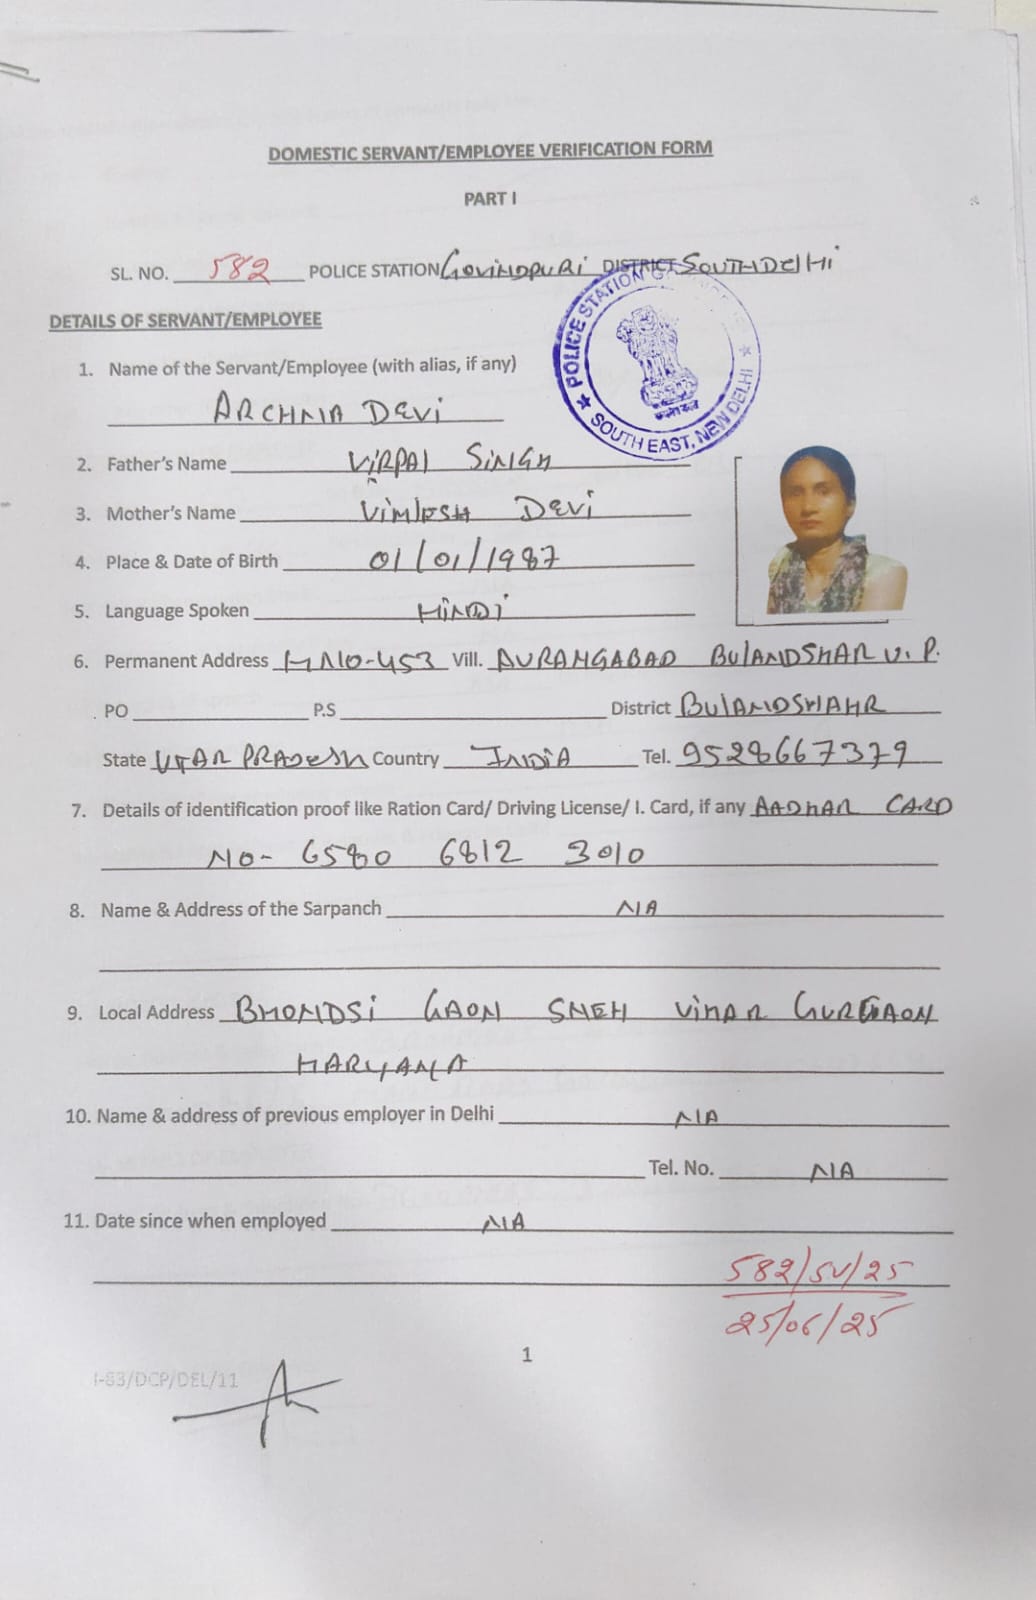 DOMESTIC SERVANT/EMPLOYEE VERIFICATION FORM
PART I
SL. NO. 582 POLICE STATION GOVINDPURI DISTRICT SOUTH DELHI
POLICE STATION
SOUTH EAST, NEW DELHI
DETAILS OF SERVANT/EMPLOYEE
1. Name of the Servant/Employee (with alias, if any)
ARCHNA DEVI
2. Father's Name VIRPAL SINGH
3. Mother's Name VIMLESH DEVI
4. Place & Date of Birth 01/01/1987
5. Language Spoken HINDI
6. Permanent Address H NO-453 Vill. AURANGABAD BULANDSHAR U.P.
PO P.S District BULANDSHAHR
State UTAR PRADESH Country INDIA Tel. 9528667379
7. Details of identification proof like Ration Card/ Driving License/ I. Card, if any AADHAR CARD
NO- 6580 6812 3010
8. Name & Address of the Sarpanch N/A
9. Local Address BHONDSI GAON SNEH VIHAR GURGAON
HARYANA
10. Name & address of previous employer in Delhi N/A
Tel. No. N/A
11. Date since when employed N/A
582/SV/25
25/06/25
1
I-83/DCP/DEL/11